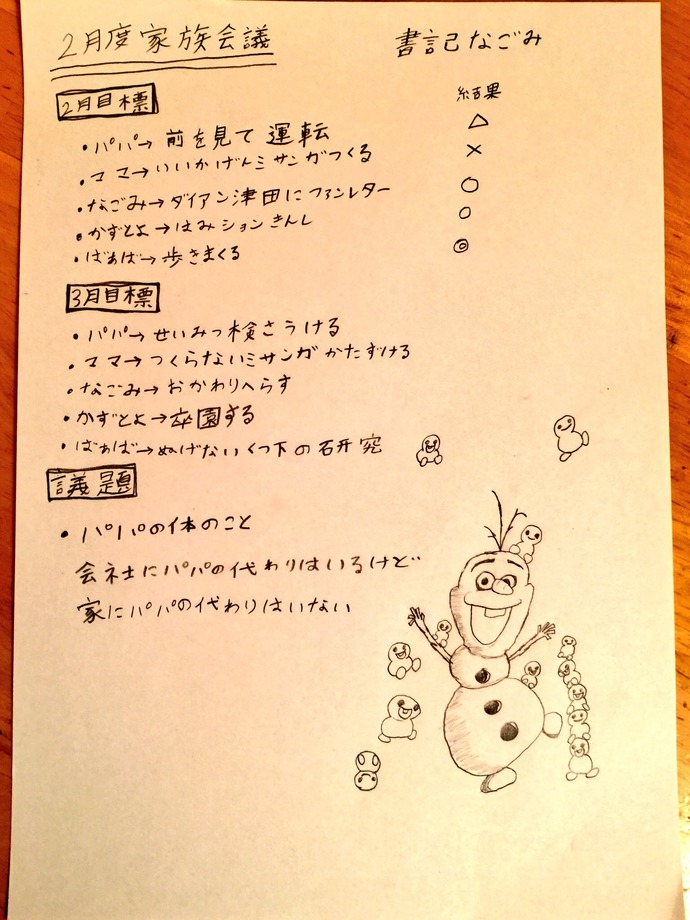 2月度家族会議 書記なごみ
2月目標 結果
・パパ→前を見て運転 △
・ママ→いいかげんミサンガつくる ×
・なごみ→ダイアン津田にファンレター ○
・かずとよ→はみションきんし ○
・ばぁば→歩きまくる ◎
3月目標
・パパ→せいみつ検さうける
・ママ→つくらないミサンガかたずける
・なごみ→おかわりへらす
・かずとよ→卒園する
・ばぁば→ぬげないくつ下の研究
議題
・パパの体のこと
会社にパパの代わりはいるけど
家にパパの代わりはいない